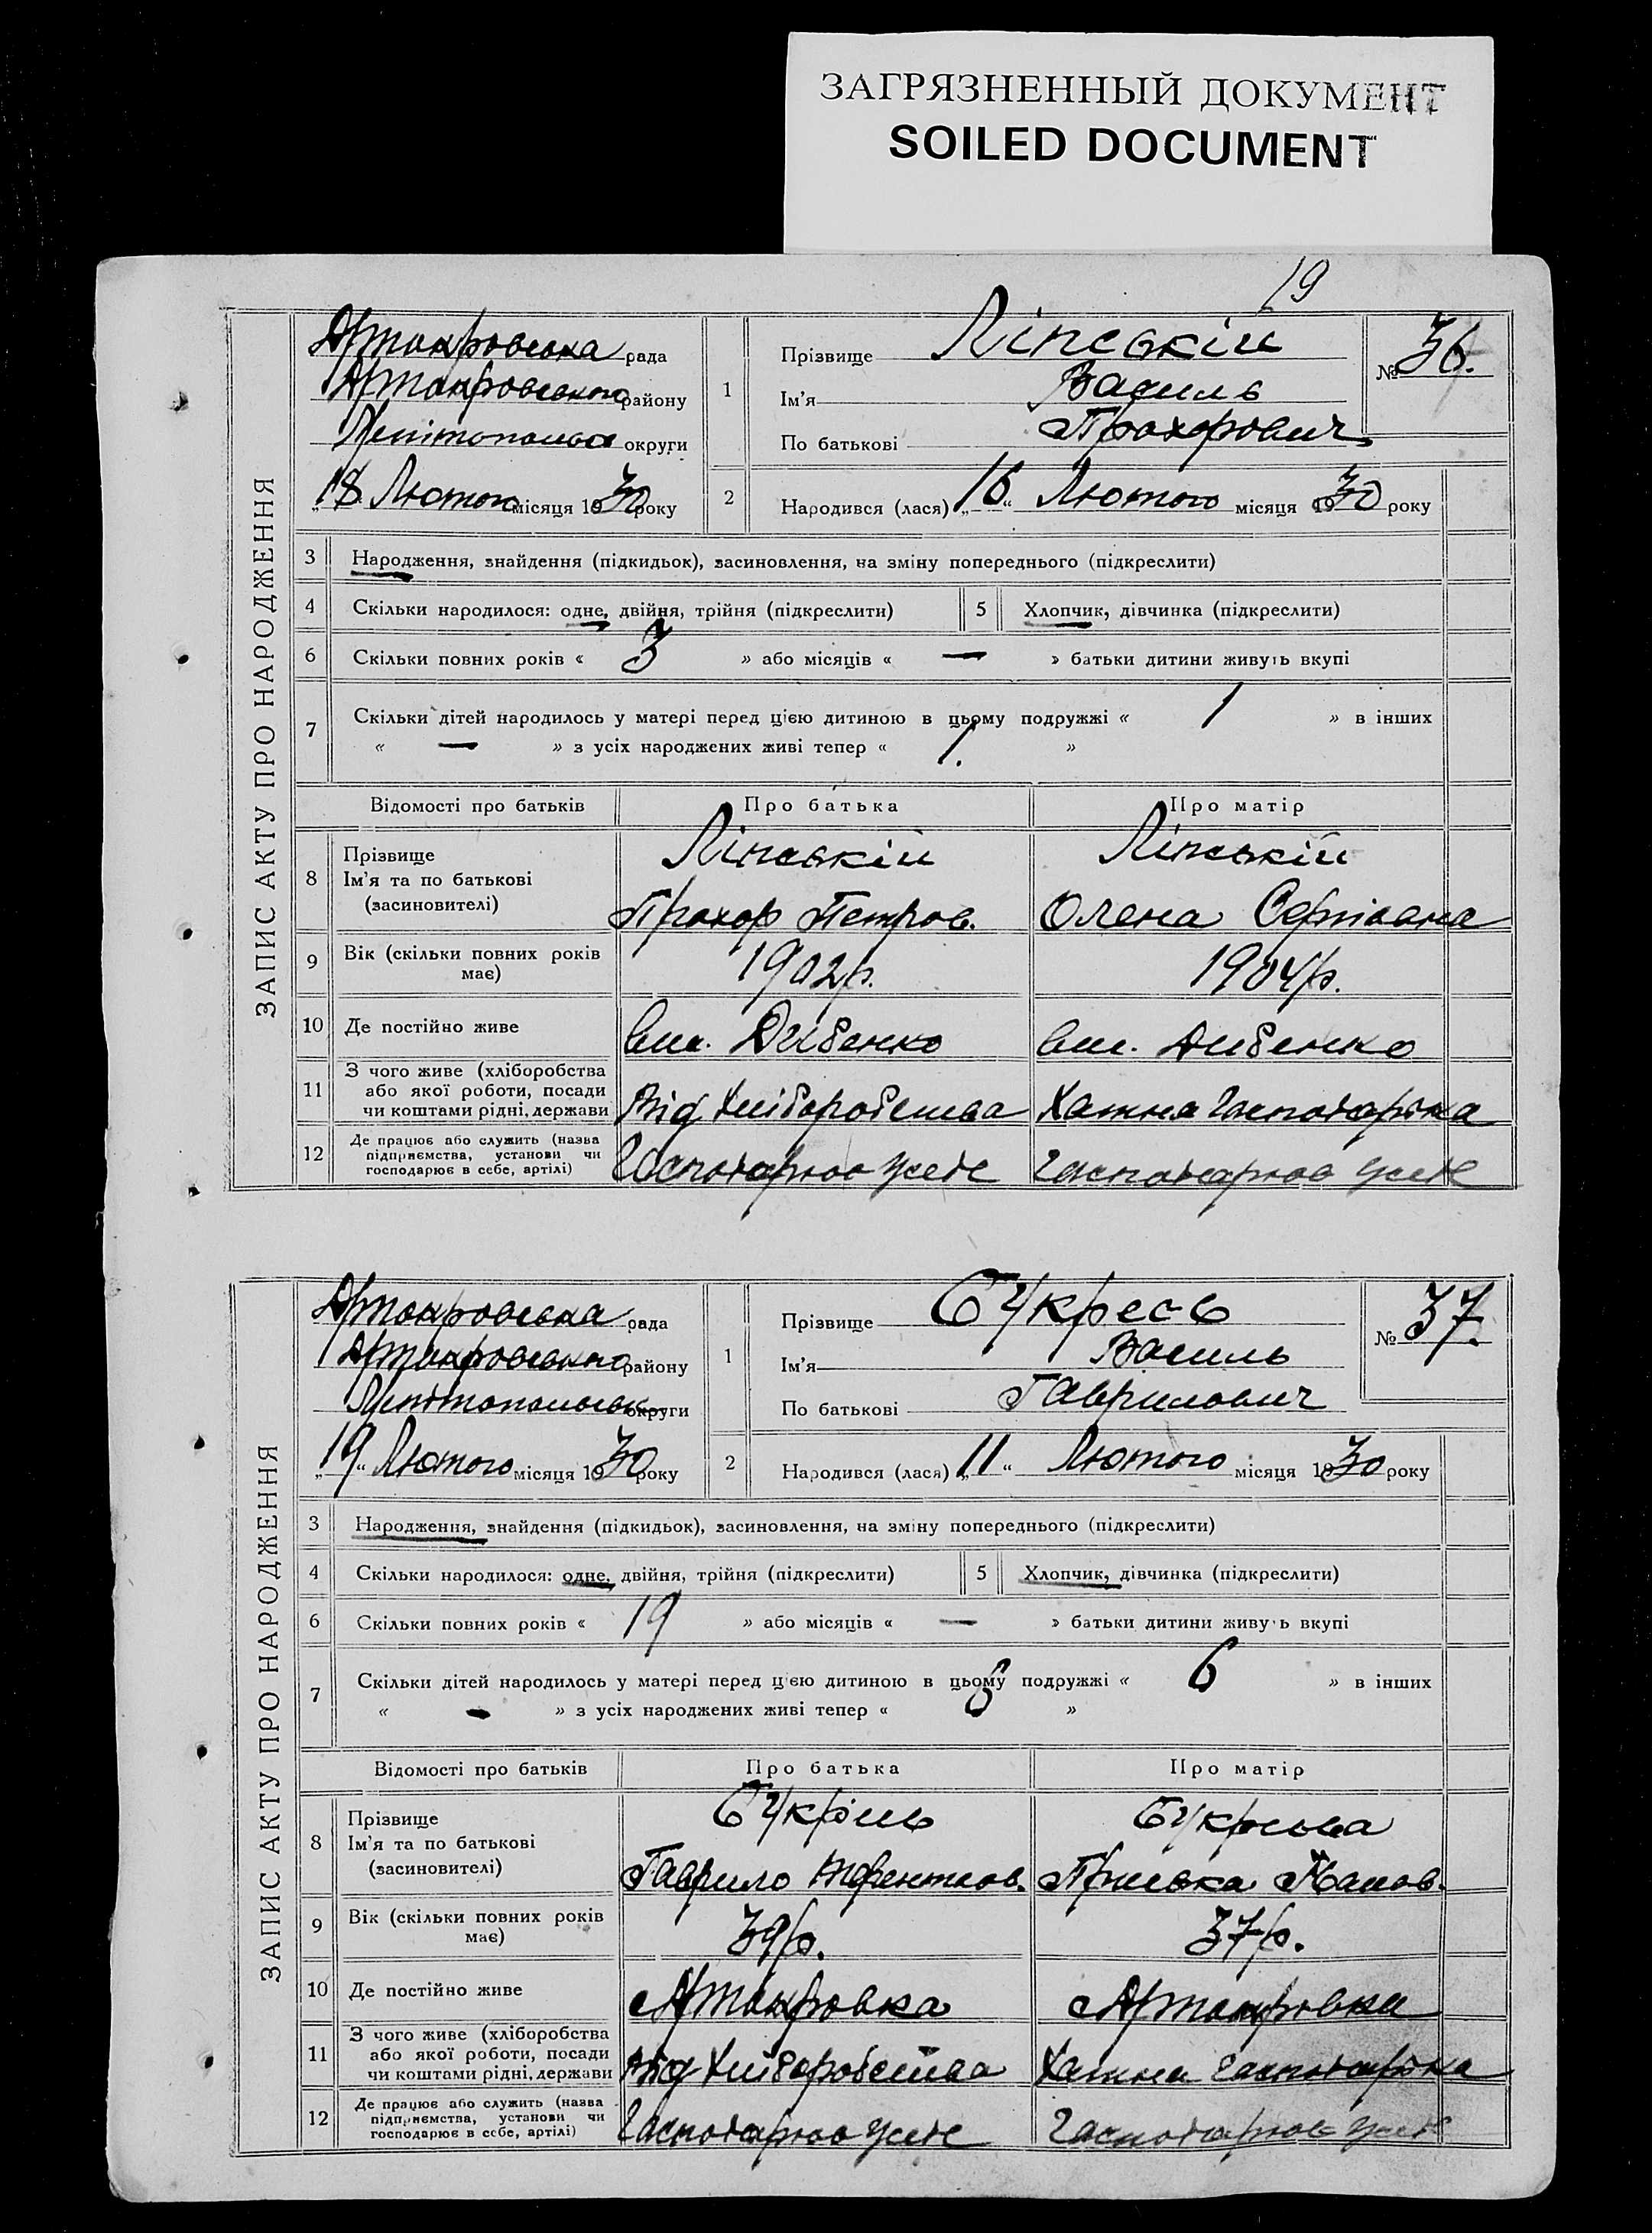 ЗАГРЯЗНЕННЫЙ ДОКУМЕНТ
SOILED DOCUMENT
19
ЗАПИС АКТУ ПРО НАРОДЖЕННЯ
рада
району
округи
„18“ Лютого місяця 1930 року
1
Прізвище Ліпській
Ім'я Василь
По батькові Прохорович
№ 36.
2
Народився (лася) „16“ Лютого місяця 1930 року
3 Народження, знайдення (підкидьок), засиновлення, на зміну попереднього (підкреслити)
4 Скільки народилося: одне, двійня, трійня (підкреслити) 5 Хлопчик, дівчинка (підкреслити)
6 Скільки повних років « 3 » або місяців « — » батьки дитини живуть вкупі
7 Скільки дітей народилось у матері перед цією дитиною в цьому подружжі « 1 » в інших
« — » з усіх народжених живі тепер « 1. »
Відомості про батьків Про батька Про матір
8 Прізвище Ліпській Ліпській
Ім'я та по батькові
(засиновителі) Прохор Петров. Олена
9 Вік (скільки повних років має) 1902р. 1904р.
10 Де постійно живе Дибенко Дибенко
11 З чого живе (хліборобства
або якої роботи, посади
чи коштами рідні, держави Від Хліборобства Хатня господарка
12 Де працює або служить (назва
підприємства, установи чи
господарює в себе, артілі) Господарює у себе Господарює у себе
ЗАПИС АКТУ ПРО НАРОДЖЕННЯ
рада
району
округи
„19“ Лютого місяця 1930 року
1
Прізвище Букресь
Ім'я Василь
По батькові Гаврилович
№ 37.
2
Народився (лася) „11“ Лютого місяця 1930 року
3 Народження, знайдення (підкидьок), засиновлення, на зміну попереднього (підкреслити)
4 Скільки народилося: одне, двійня, трійня (підкреслити) 5 Хлопчик, дівчинка (підкреслити)
6 Скільки повних років « 19 » або місяців « — » батьки дитини живуть вкупі
7 Скільки дітей народилось у матері перед цією дитиною в цьому подружжі « 6 » в інших
« — » з усіх народжених живі тепер « 6 »
Відомості про батьків Про батька Про матір
8 Прізвище
Ім'я та по батькові
(засиновителі) Гаврило
9 Вік (скільки повних років має) 39р. 37р.
10 Де постійно живе
11 З чого живе (хліборобства
або якої роботи, посади
чи коштами рідні, держави Від Хліборобства Хатня господарка
12 Де працює або служить (назва
підприємства, установи чи
господарює в себе, артілі) Господарює у себе Господарює у себе